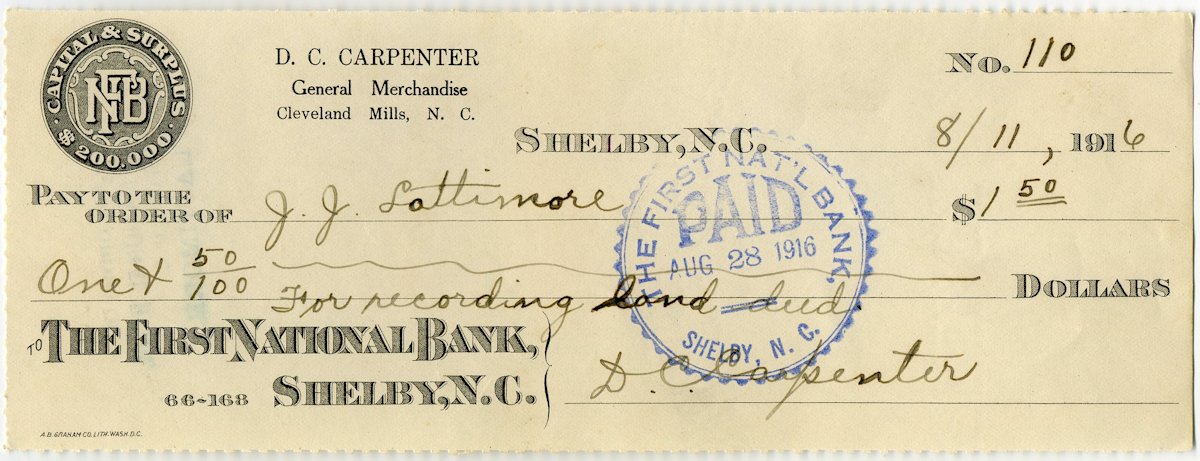 CAPITAL & SURPLUS
NFB
$200.000
D. C. CARPENTER
General Merchandise
Cleveland Mills, N. C.
No. 110
SHELBY, N.C. 8/11, 1916
PAY TO THE
ORDER OF J. J. Lattimore $1 50
One & 50/100 DOLLARS
For recording land deed.
THE FIRST NAT'L BANK,
PAID
AUG 28 1916
SHELBY, N. C.
TO THE FIRST NATIONAL BANK,
66-168 SHELBY, N.C.
D. C. Carpenter
A.B. GRAHAM CO. LITH. WASH. D.C.